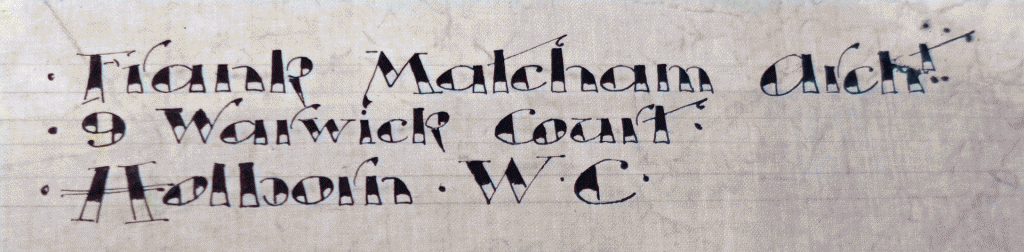 · Frank Matcham Archt.
· 9 Warwick Court.
· Holborn · W · C ·